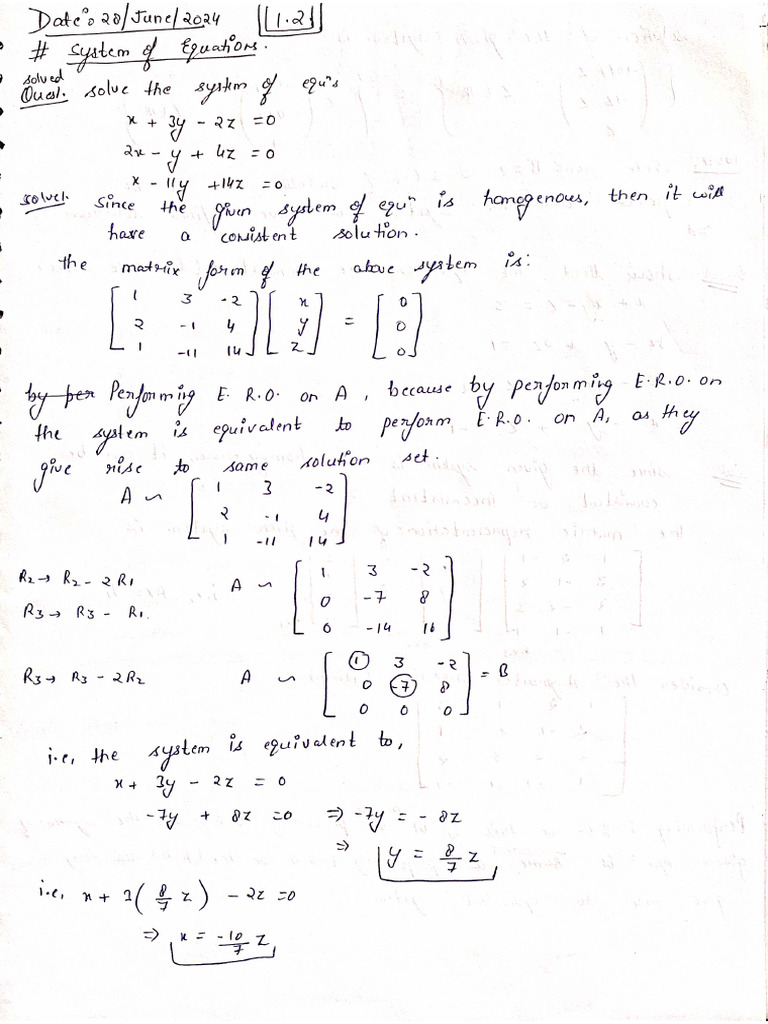 Date: 28/June/2024 [1.2]
# System of Equations.
solved
Quest. solve the system of equⁿs
x + 3y - 2z = 0
2x - y + 4z = 0
x - 11y + 14z = 0
solve. since the given system of equⁿ is homogenous, then it will
have a consistent solution.
the matrix form of the above system is:
[ 1 3 -2 ] [ x ] [ 0 ]
[ 2 -1 4 ] [ y ] = [ 0 ]
[ 1 -11 14 ] [ z ] [ 0 ]
by per Performing E.R.O. on A, because by performing E.R.O. on
the system is equivalent to perform E.R.O. on A, as they
give rise to same solution set.
A ~ [ 1 3 -2 ]
[ 2 -1 4 ]
[ 1 -11 14 ]
R2 → R2 - 2R1 A ~ [ 1 3 -2 ]
R3 → R3 - R1. [ 0 -7 8 ]
[ 0 -14 16 ]
R3 → R3 - 2R2 A ~ [ 1 3 -2 ] = B
[ 0 -7 8 ]
[ 0 0 0 ]
i.e, the system is equivalent to,
x + 3y - 2z = 0
-7y + 8z = 0 ⇒ -7y = -8z
⇒ y = 8/7 z
i.e, x + 3(8/7 z) - 2z = 0
⇒ x = -10/7 z